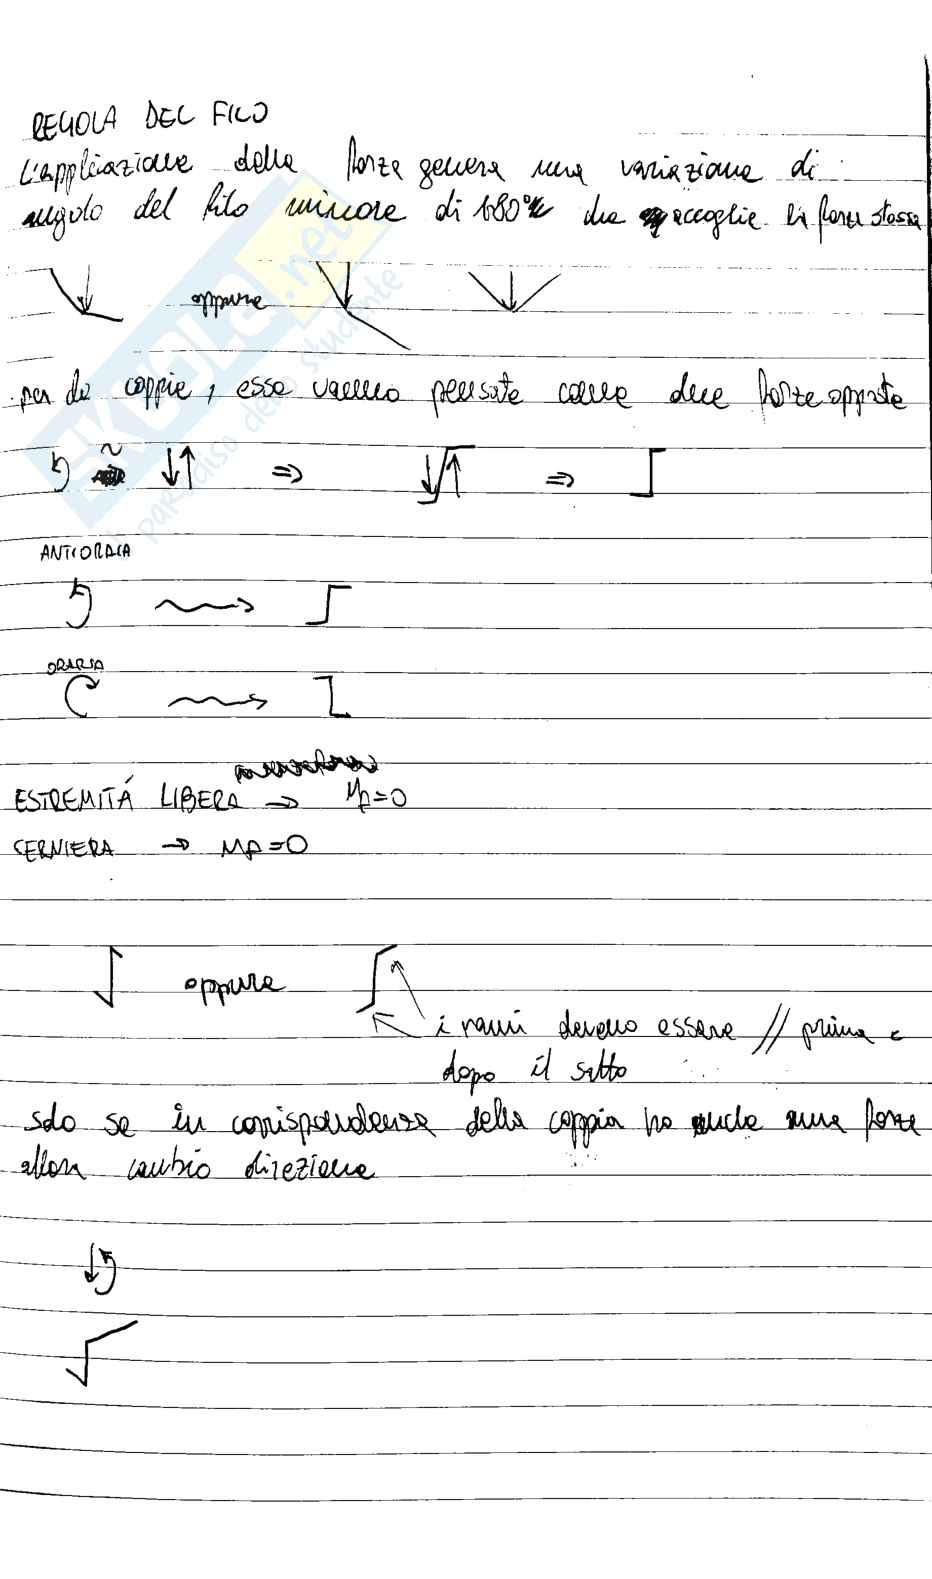 REGOLA DEL FILO
L'applicazione della forza genera una variazione di
angolo del filo minore di 180° che accoglie la forza stessa
oppure
per le coppie, esse vanno pensate come due forze opposte
~ ↓↑ ⇒ ⇒
ANTIORARIA
ORARIA
ESTREMITÁ LIBERA → =0
CERNIERA → =0
oppure
i rami devono essere // prima e
dopo il salto
solo se in corrispondenza della coppia ho anche una forza
allora cambio direzione
SKUOLA.net
il paradiso dello studente